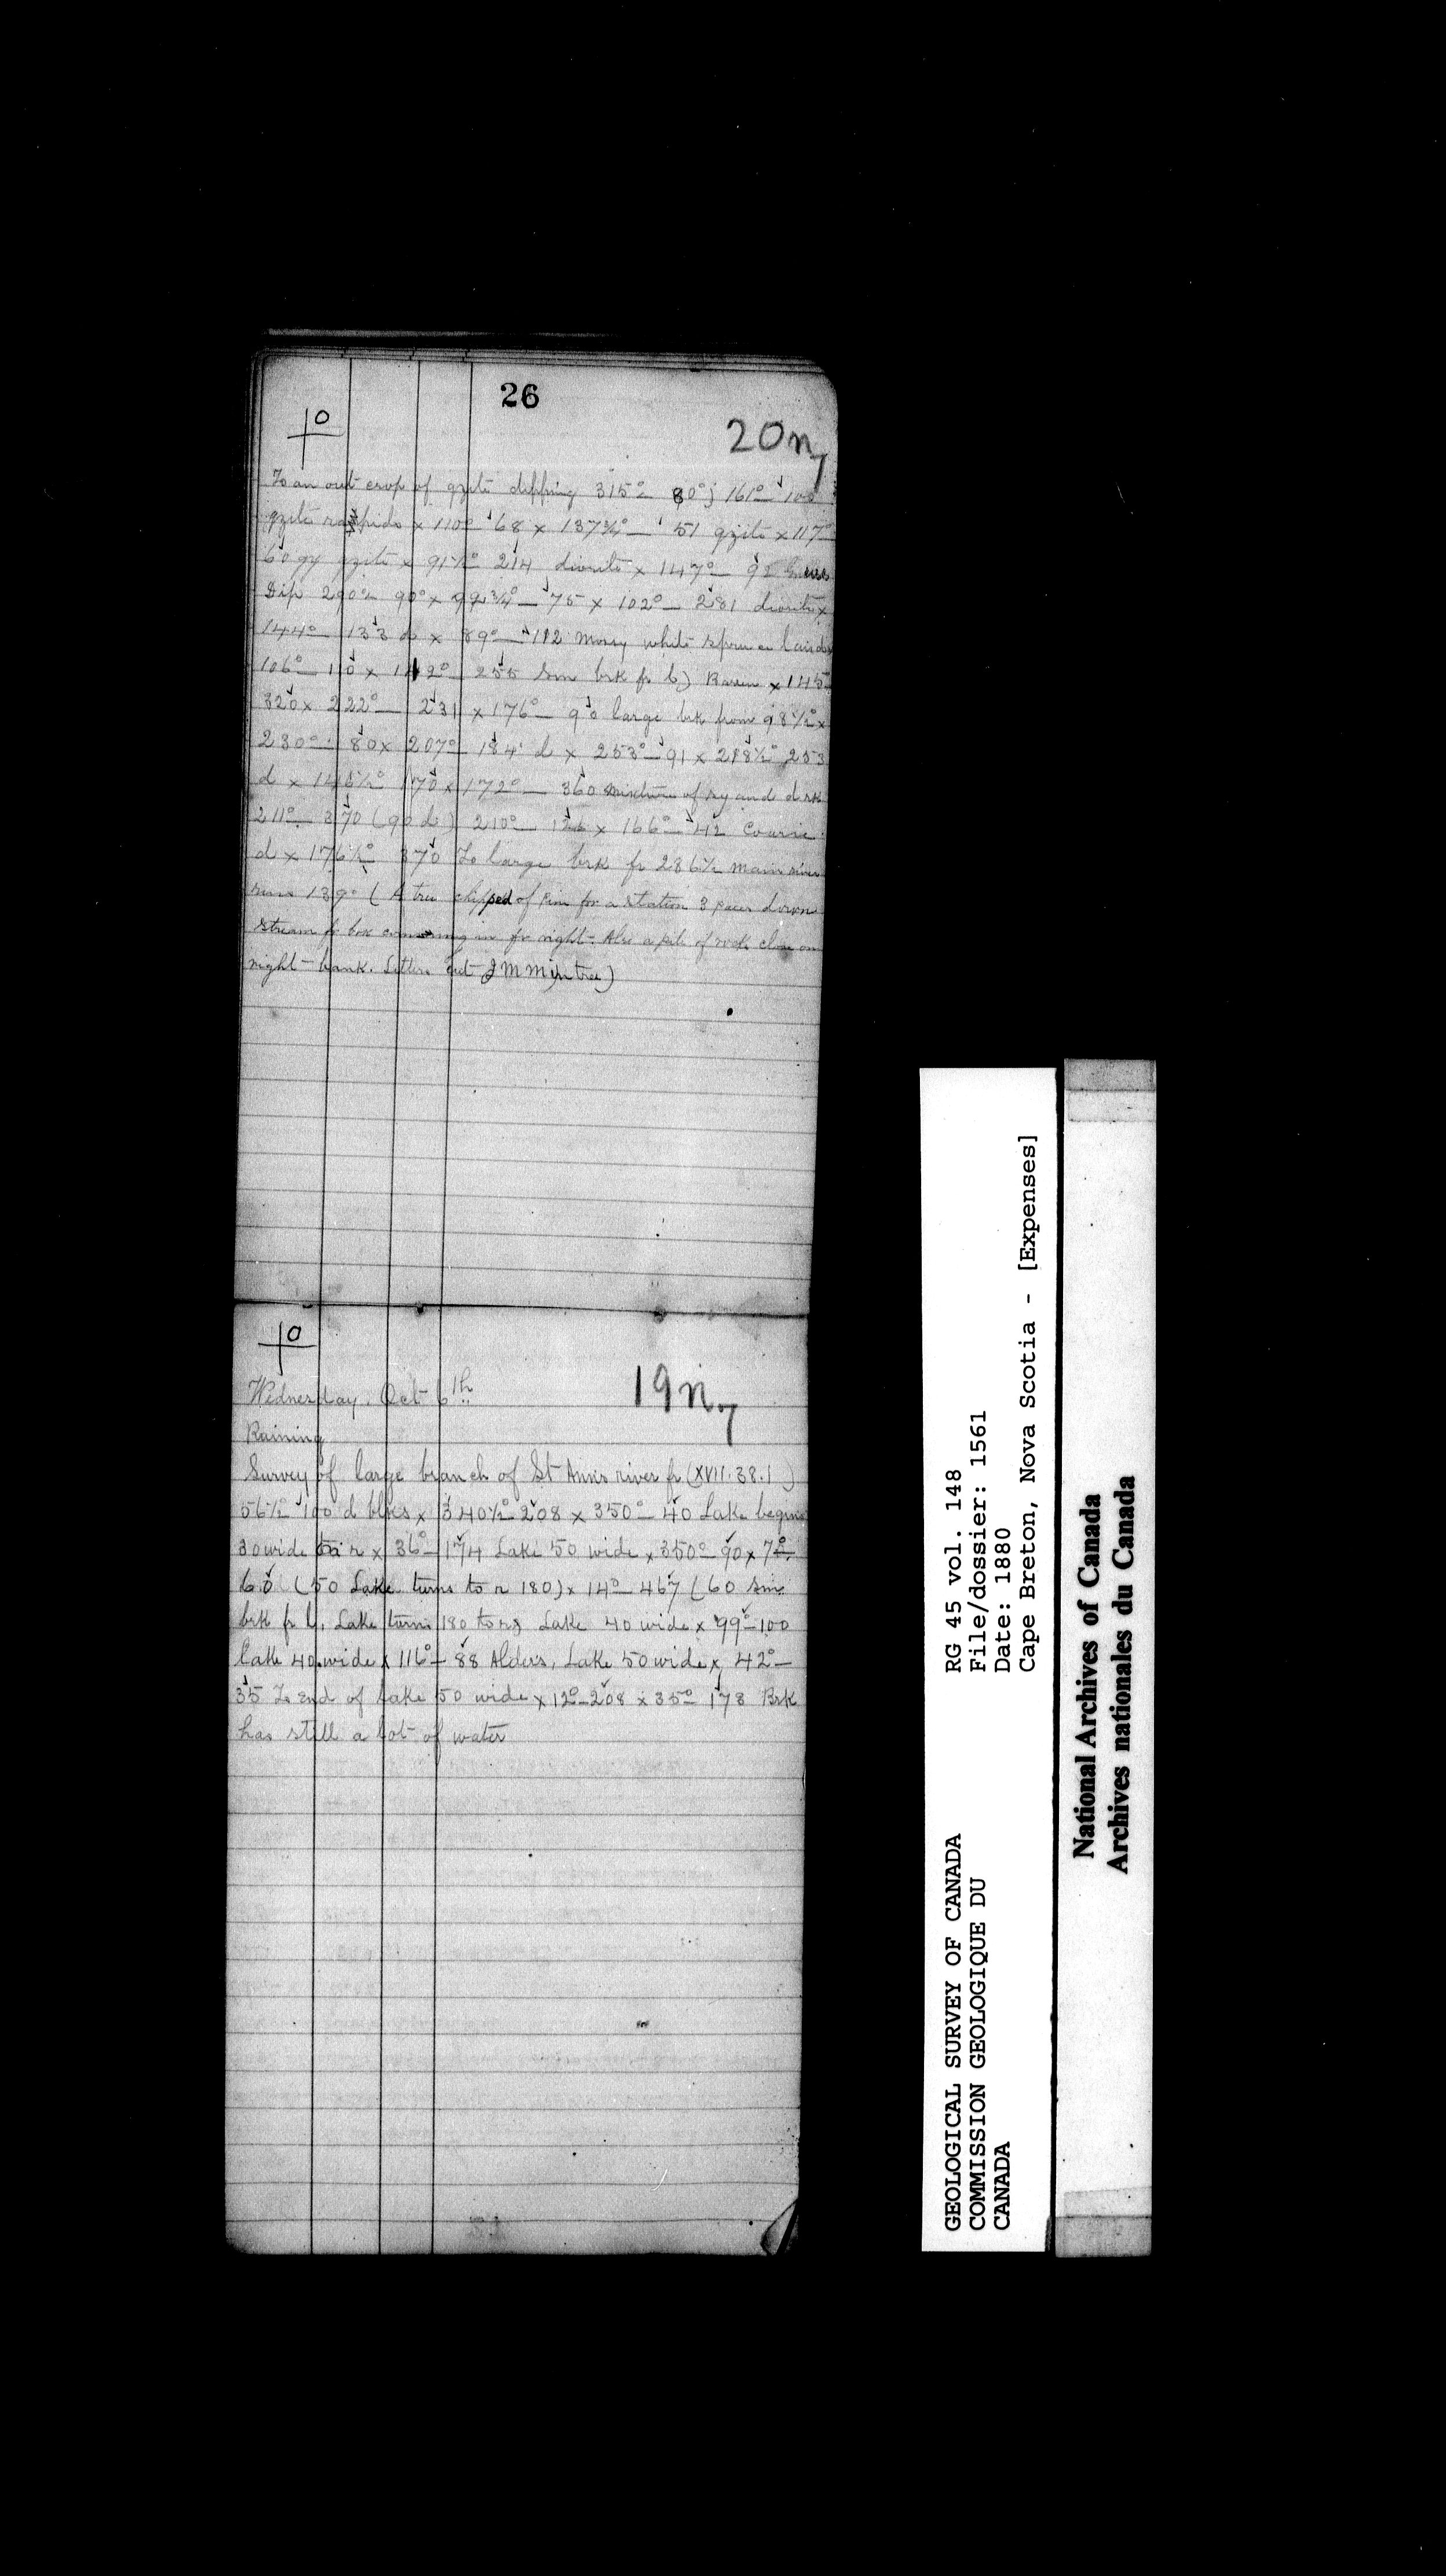 26
20n7
To an out crop of qzite dipping 315° 80°) 161° 100
qzite rapids x 110° 68 x 137¾° 51 qzite x 117°
60 gy qzite x 91½° 214 diorite x 147° 92
Dip 290° 90° x 99¾° 75 x 102° 281 diorite x
144° 133 d x 89° 112 Mossy white spruce lands
106° 110 x 142° 255 Sm brk fr l) Barren x 145°
320 x 222° 231 x 176° 90 large brk from 98½° x
230° 80 x 207° 184 d x 253° 91 x 218½° 253
d x 145½° 170 x 172° 360 mixture of sy and d rk
211° 370 (90 d) 210° 125 x 166° 42 Coarse
d x 176½° 370 To large brk fr 286½ main river
runs 139° (A tree chipped of for a station 3 paces down
stream fr brk coming in fr right. Also a pile of rocks close on
right bank. Letters cut J M M in tree)
19n7
Wednesday. Oct 6th
Raining
Survey of large branch of St Anns river fr (XVII.38.1)
56½° 100 d blks x 340½° 208 x 350° 40 Lake begins
30 wide to r x 36° 174 Lake 50 wide x 350° 90 x 7°
60 (50 Lake turns to r 180) x 14° 467 (60 sm
brk fr l, Lake turns 180 to r) Lake 40 wide x 99° 100
Lake 40 wide x 116° 88 Alders, Lake 50 wide x 42°
35 To end of Lake 50 wide x 12° 208 x 35° 178 Brk
has still a lot of water
GEOLOGICAL SURVEY OF CANADA
COMMISSION GEOLOGIQUE DU
CANADA
RG 45 vol. 148
File/dossier: 1561
Date: 1880
Cape Breton, Nova Scotia - [Expenses]
National Archives of Canada
Archives nationales du Canada